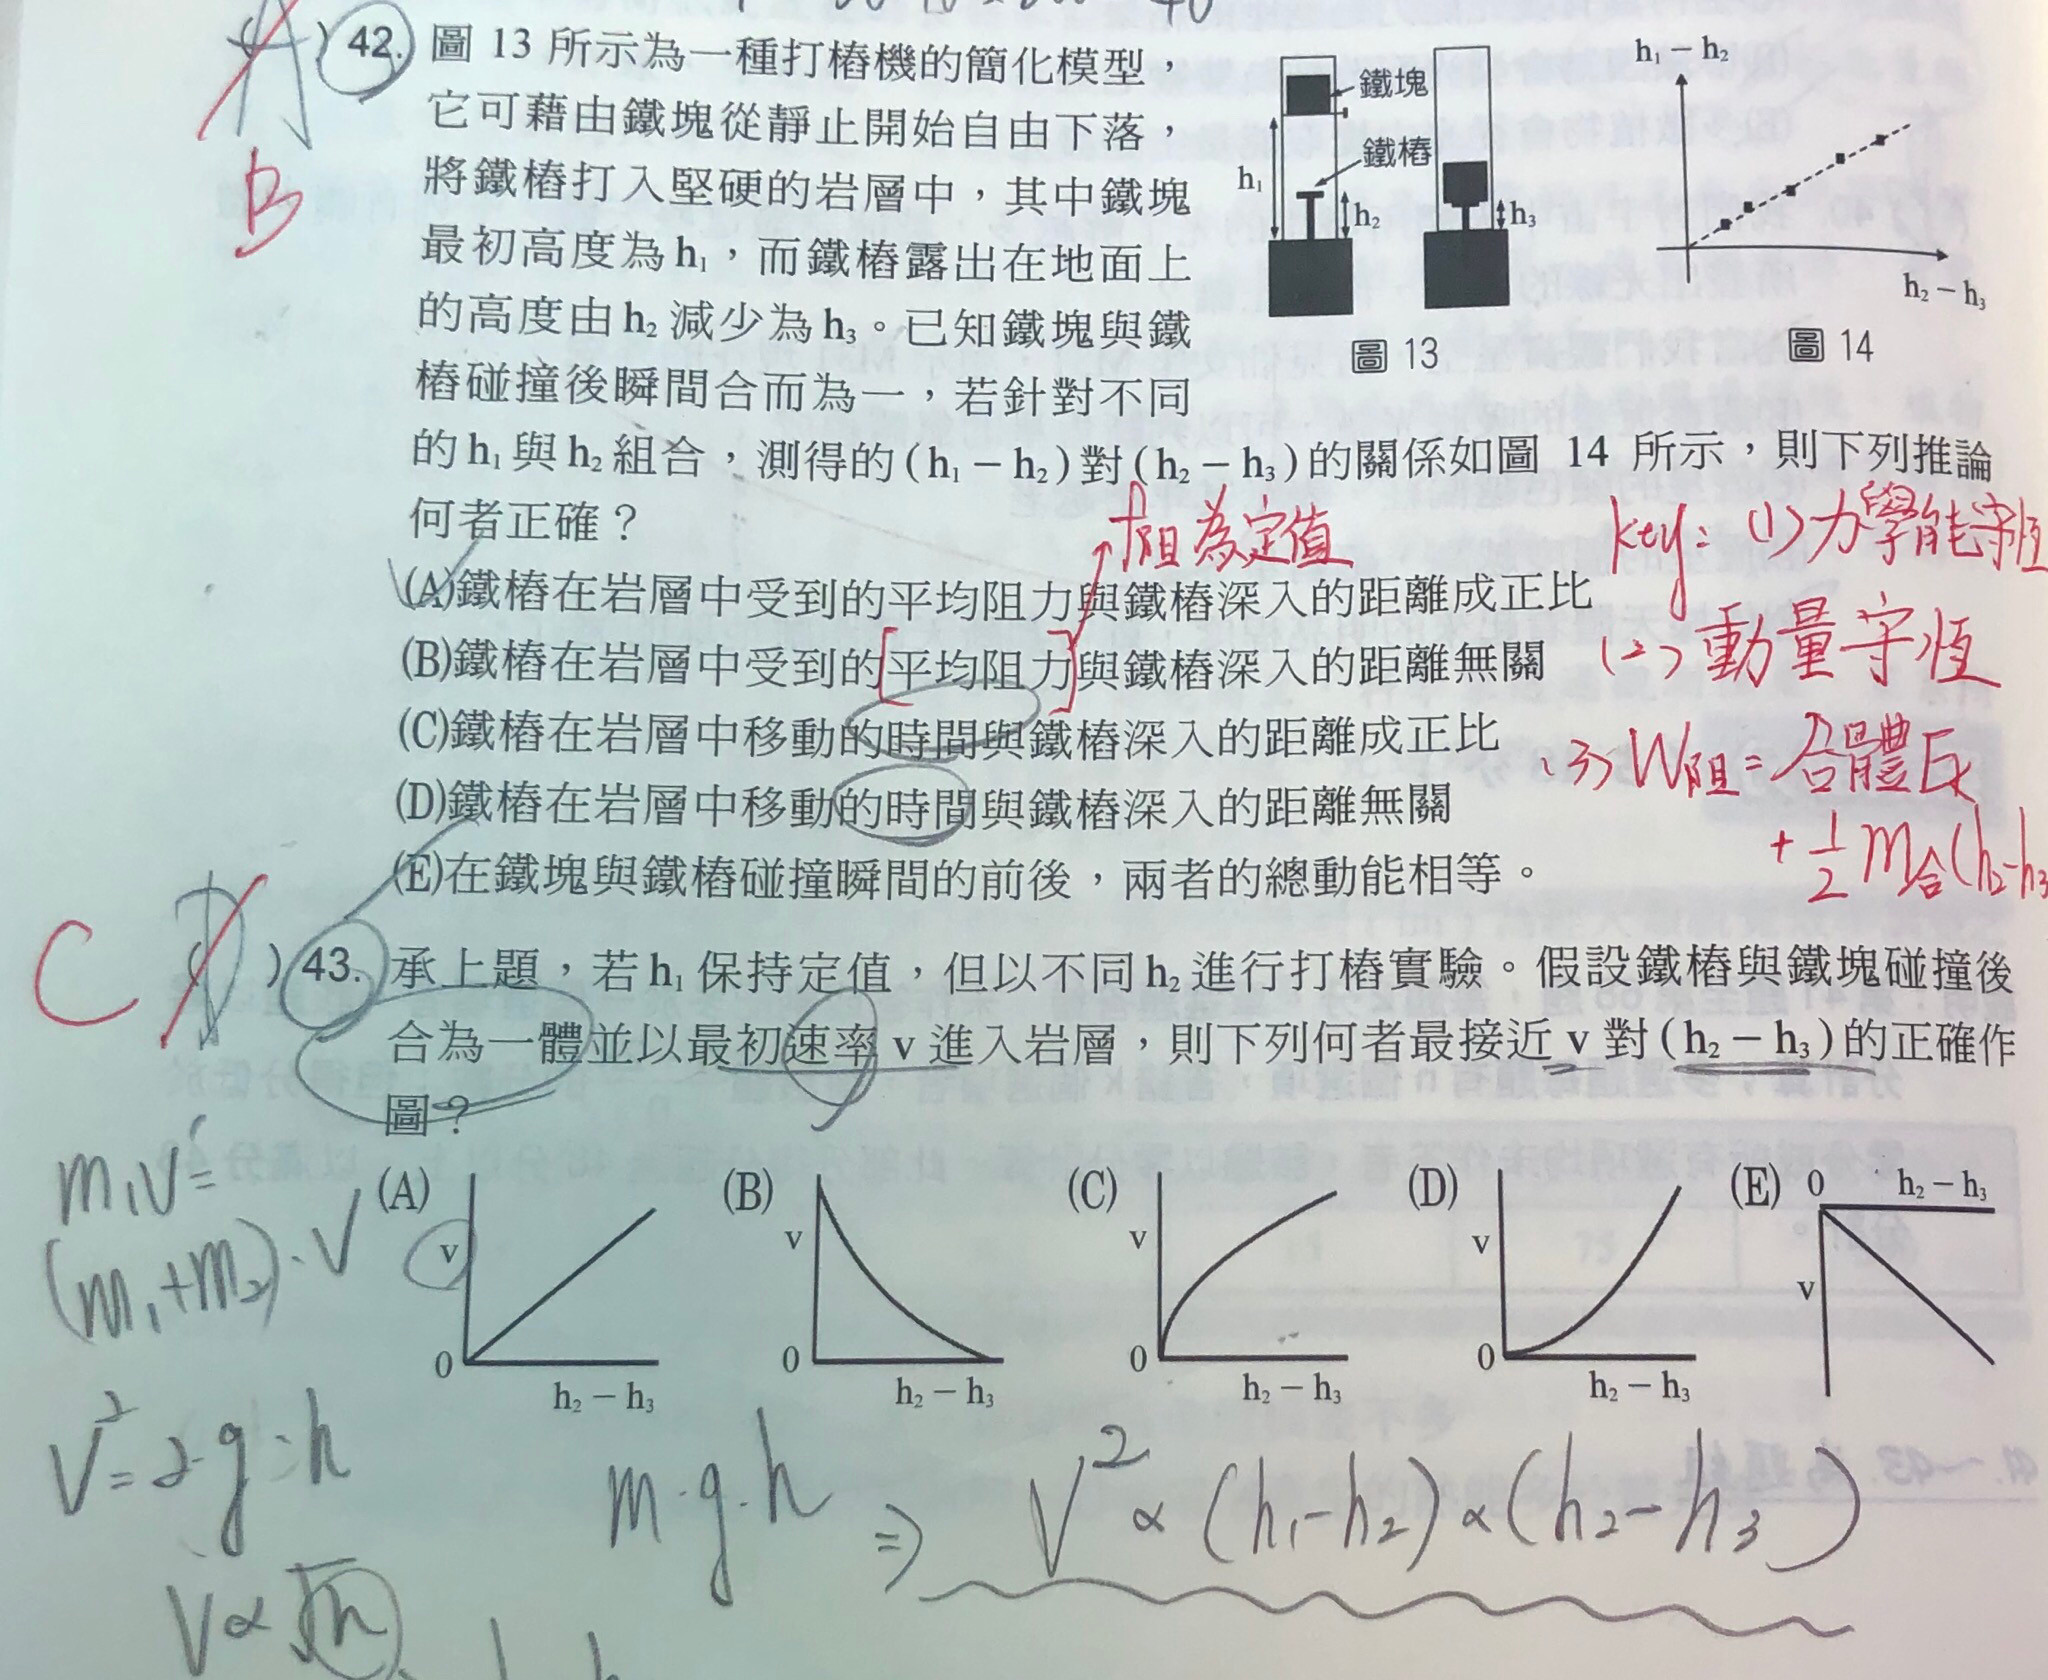 42. 圖 13 所示為一種打樁機的簡化模型，
它可藉由鐵塊從靜止開始自由下落，
將鐵樁打入堅硬的岩層中，其中鐵塊
最初高度為h₁，而鐵樁露出在地面上
的高度由h₂減少為h₃。已知鐵塊與鐵
樁碰撞後瞬間合而為一，若針對不同
的h₁與h₂組合，測得的(h₁－h₂)對(h₂－h₃)的關係如圖 14 所示，則下列推論
何者正確？
A
B
鐵塊
鐵樁
h₁
h₂
h₃
圖 13
h₁－h₂
h₂－h₃
圖 14
f阻為定值
(A)鐵樁在岩層中受到的平均阻力與鐵樁深入的距離成正比
(B)鐵樁在岩層中受到的[平均阻力]與鐵樁深入的距離無關
(C)鐵樁在岩層中移動的時間與鐵樁深入的距離成正比
(D)鐵樁在岩層中移動的時間與鐵樁深入的距離無關
(E)在鐵塊與鐵樁碰撞瞬間的前後，兩者的總動能相等。
key：(1)力學能守恆
(2)動量守恆
(3)W阻=合體Ek
+½m合(h₂-h₃
C
D
) 43. 承上題，若h₁保持定值，但以不同h₂進行打樁實驗。假設鐵樁與鐵塊碰撞後
合為一體並以最初速率 v 進入岩層，則下列何者最接近 v 對(h₂－h₃)的正確作
圖？
(A) v 0 h₂－h₃
(B) v 0 h₂－h₃
(C) v 0 h₂－h₃
(D) v 0 h₂－h₃
(E) 0 h₂－h₃ v
m₁v=
(m₁+m₂)·V
V²=2·g·h
V∝√h
m·g·h
⇒ V²∝(h₁-h₂)∝(h₂-h₃)